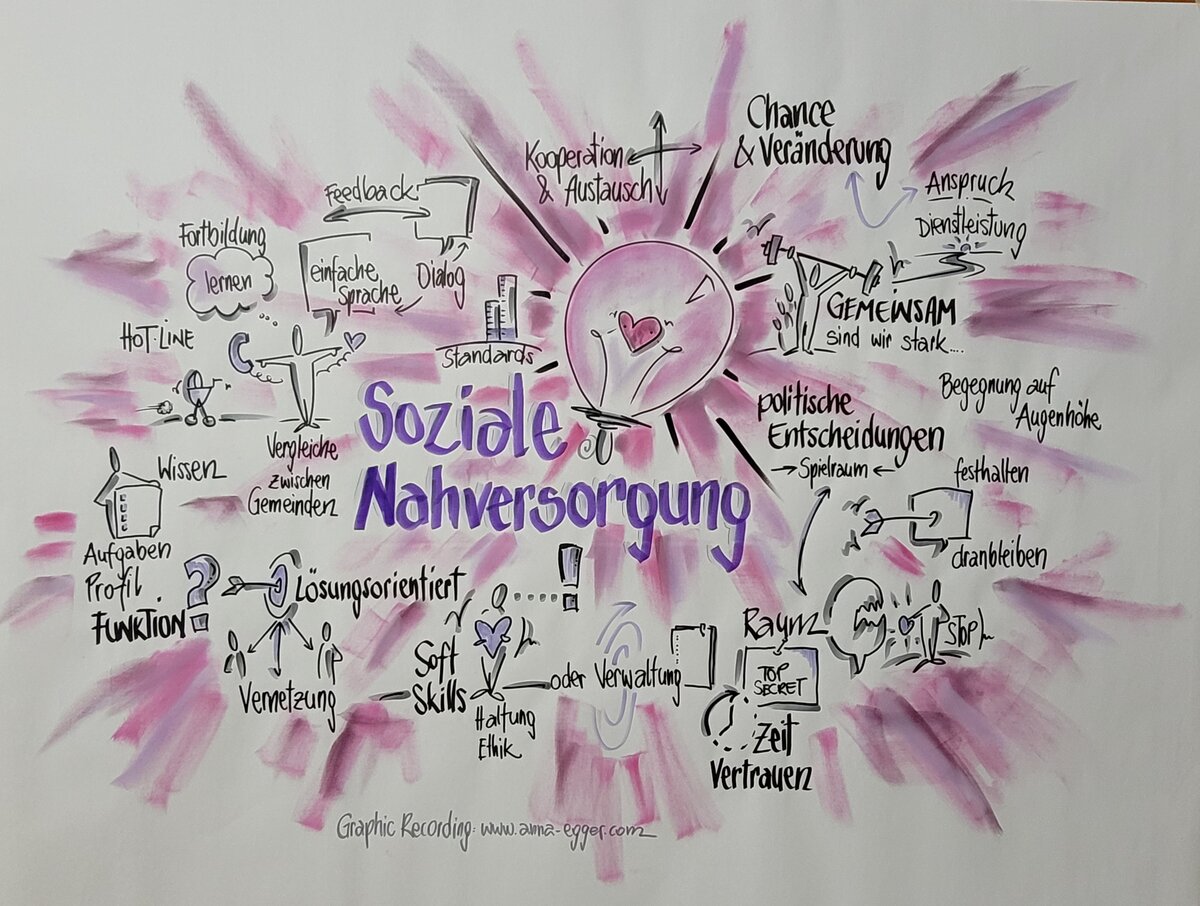 Chance
& Veränderung
Kooperation
& Austausch
Anspruch
Dienstleistung
Feedback
Dialog
Fortbildung
lernen
einfache
Sprache
HOT-LINE
Standards
GEMEINSAM
sind wir stark....
Soziale
Nahversorgung
politische
Entscheidungen
Spielraum
Begegnung auf
Augenhöhe
Vergleiche
zwischen
Gemeinden
Wissen
Aufgaben
Profil
FUNKTION
?
festhalten
dranbleiben
Lösungsorientiert
Vernetzung
Soft
Skills
!
Haltung
Ethik
oder Verwaltung
Raum
TOP
SECRET
STOP
Zeit
Vertrauen
Graphic Recording: www.anna-egger.com